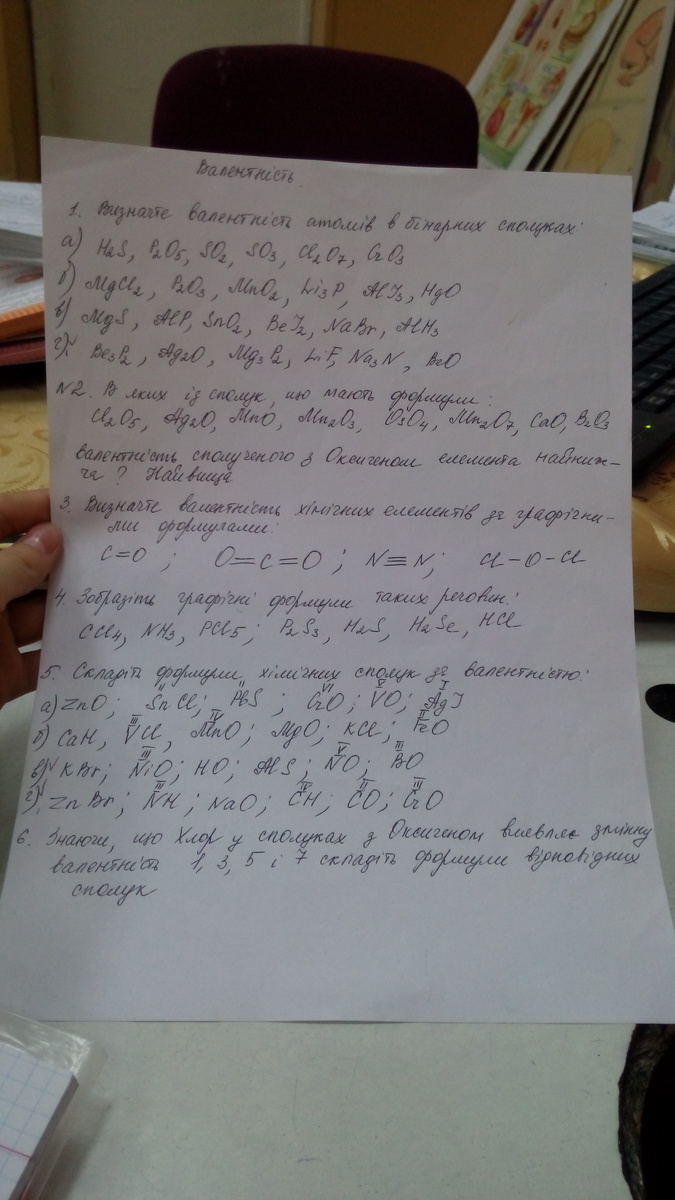 Валентність
1. Визначте валентність атомів в бінарних сполуках:
а) H₂S, P₂O₅, SO₂, SO₃, Cl₂O₇, CrO₃
б) MgCl₂, P₂O₃, MnO₂, Li₃P, AlI₃, HgO
в) MgS, AlP, SnO₂, BeI₂, NaBr, AlH₃
г) Be₃P₂, Ag₂O, Mg₃P₂, LiF, Na₃N, BeO
N2. В яких із сполук, що мають формули:
Cl₂O₅, Ag₂O, MnO, Mn₂O₃, OsO₄, Mn₂O₇, CaO, B₂O₃
валентність сполученого з Оксигеном елемента найниж-
ча? Найвища
3. Визначте валентність хімічних елементів за графічни-
ми формулами:
C=O ; O=C=O ; N≡N; Cl-O-Cl
4. Зобразіть графічні формули таких речовин:
CCl₄, NH₃, PCl₅; P₂S₃, H₂S, H₂Se, HCl
5. Складіть формули хімічних сполук за валентністю:
II II VI V I
а) ZnO; SnCl; PbS ; CrO; VO; AgI
III IV III
б) CaH, VCl, MnO; MgO; KCl; FeO
III V III
в) KBr; NiO; HO; AlS; NO; BO
III IV II III
г) ZnBr; NH; NaO; CH; CO; CrO
6. Знаючи, що Хлор у сполуках з Оксигеном виявляє змінну
валентність 1, 3, 5 і 7 складіть формули відповідних
сполук